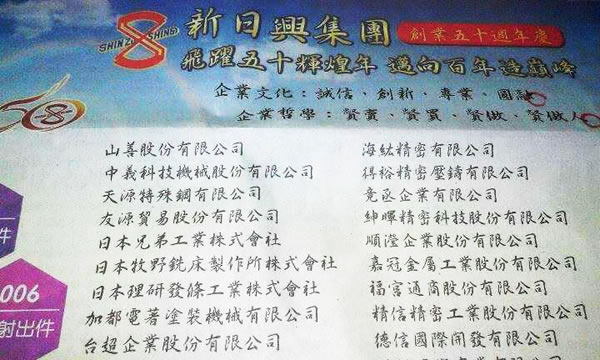 SHIN ZU SHING
新日興集團
創業五十週年慶
飛躍五十輝煌年 邁向百年造巔峰
企業文化：誠信、創新、專業、圓融
企業哲學：賢賣、賢買、賢做、賢做人
50
山善股份有限公司
中義科技機械股份有限公司
天源特殊鋼有限公司
友源貿易股份有限公司
日本兄弟工業株式會社
日本牧野銑床製作所株式會社
日本理研發條工業株式會社
加都電著塗裝機械有限公司
台超企業股份有限公司
海紘精密有限公司
得裕精密壓鑄有限公司
竞丞企業有限公司
紳暉精密科技股份有限公司
順瀅企業股份有限公司
嘉冠金屬工業股份有限公司
福宮通商股份有限公司
精信精密工業股份有限公司
德信國際開發有限公司
件
006
射出件